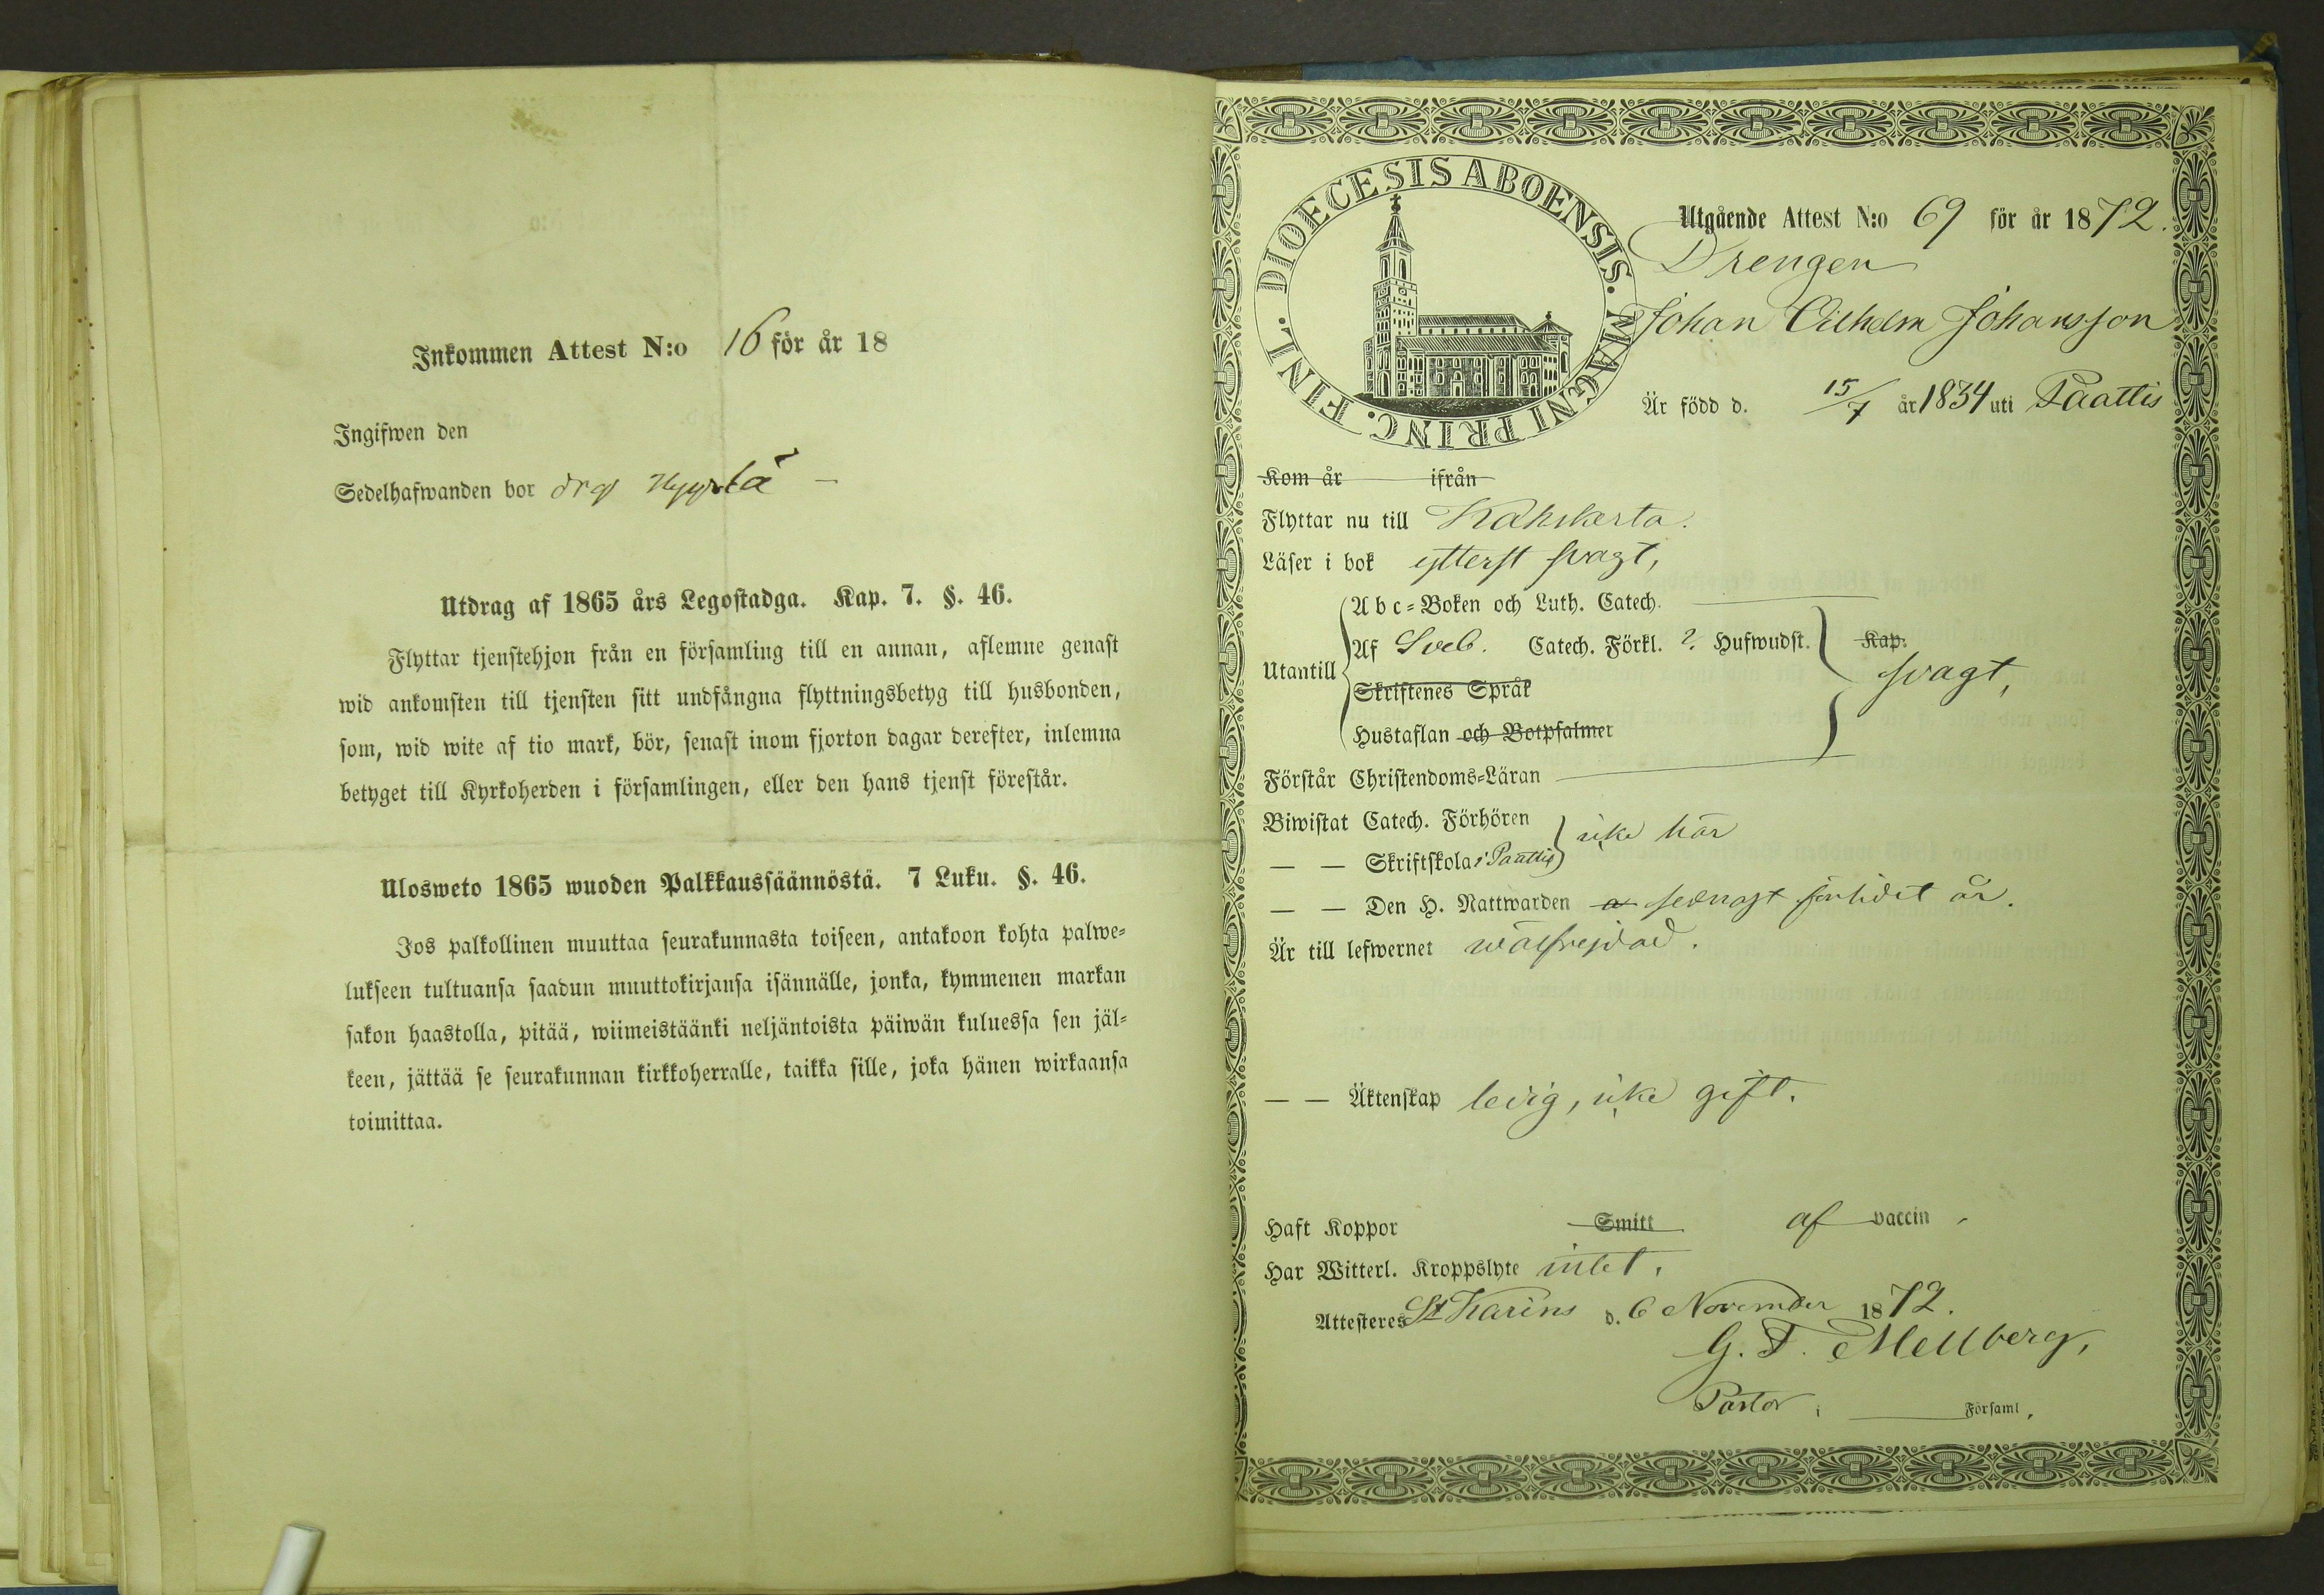 Inkommen Attest N:o 16 för år 18
Ingifwen den
Sedelhafwanden bor drg
Utdrag af 1865 års Legostadga. Kap. 7. §. 46.
Flyttar tjenstehjon från en församling till en annan, aflemne genast
wid ankomsten till tjensten sitt undfångna flyttningsbetyg till husbonden,
som, wid wite af tio mark, bör, senast inom fjorton dagar derefter, inlemna
betyget till Kyrkoherden i församlingen, eller den hans tjenst förestår.
Ulosweto 1865 wuoden Palkkaussäännöstä. 7 Luku. §. 46.
Jos palkollinen muuttaa seurakunnasta toiseen, antakoon kohta palwe-
lukseen tultuansa saadun muuttokirjansa isännälle, jonka, kymmenen markan
sakon haastolla, pitää, wiimeistäänki neljäntoista päiwän kuluessa sen jäl-
keen, jättää se seurakunnan kirkkoherralle, taikka sille, joka hänen wirkaansa
toimittaa.
DIOECESIS ABOENSIS. MAGNI PRINC. FINL.
Utgående Attest N:o 69 för år 1872.
Drengen
Johan Vilhelm Johansson
Är född d. 15/7 år 1834 uti Paattis
Kom år ifrån
Flyttar nu till Kahikerta.
Läser i bok ytterst svagt,
Utantill
Abc-Boken och Luth. Catech.
Af Sveb. Catech. Förkl. 2. Hufwudst. Kap.
Skriftenes Språk svagt,
Hustaflan och Botpsalmer
Förstår Christendoms-Läran
Biwistat Catech. Förhören
— — Skriftskola i Paattis icke här
— — Den H. Nattwarden sednast förlidet år.
Är till lefwernet wälfrejdad.
— — Äktenskap ledig, icke gift.
Haft Koppor Smitt af vaccin
Har Witterl. Kroppslyte intet.
Attesteres St Karins d. 6 November 1872.
G. F. Mellberg,
Pastor i Församl.